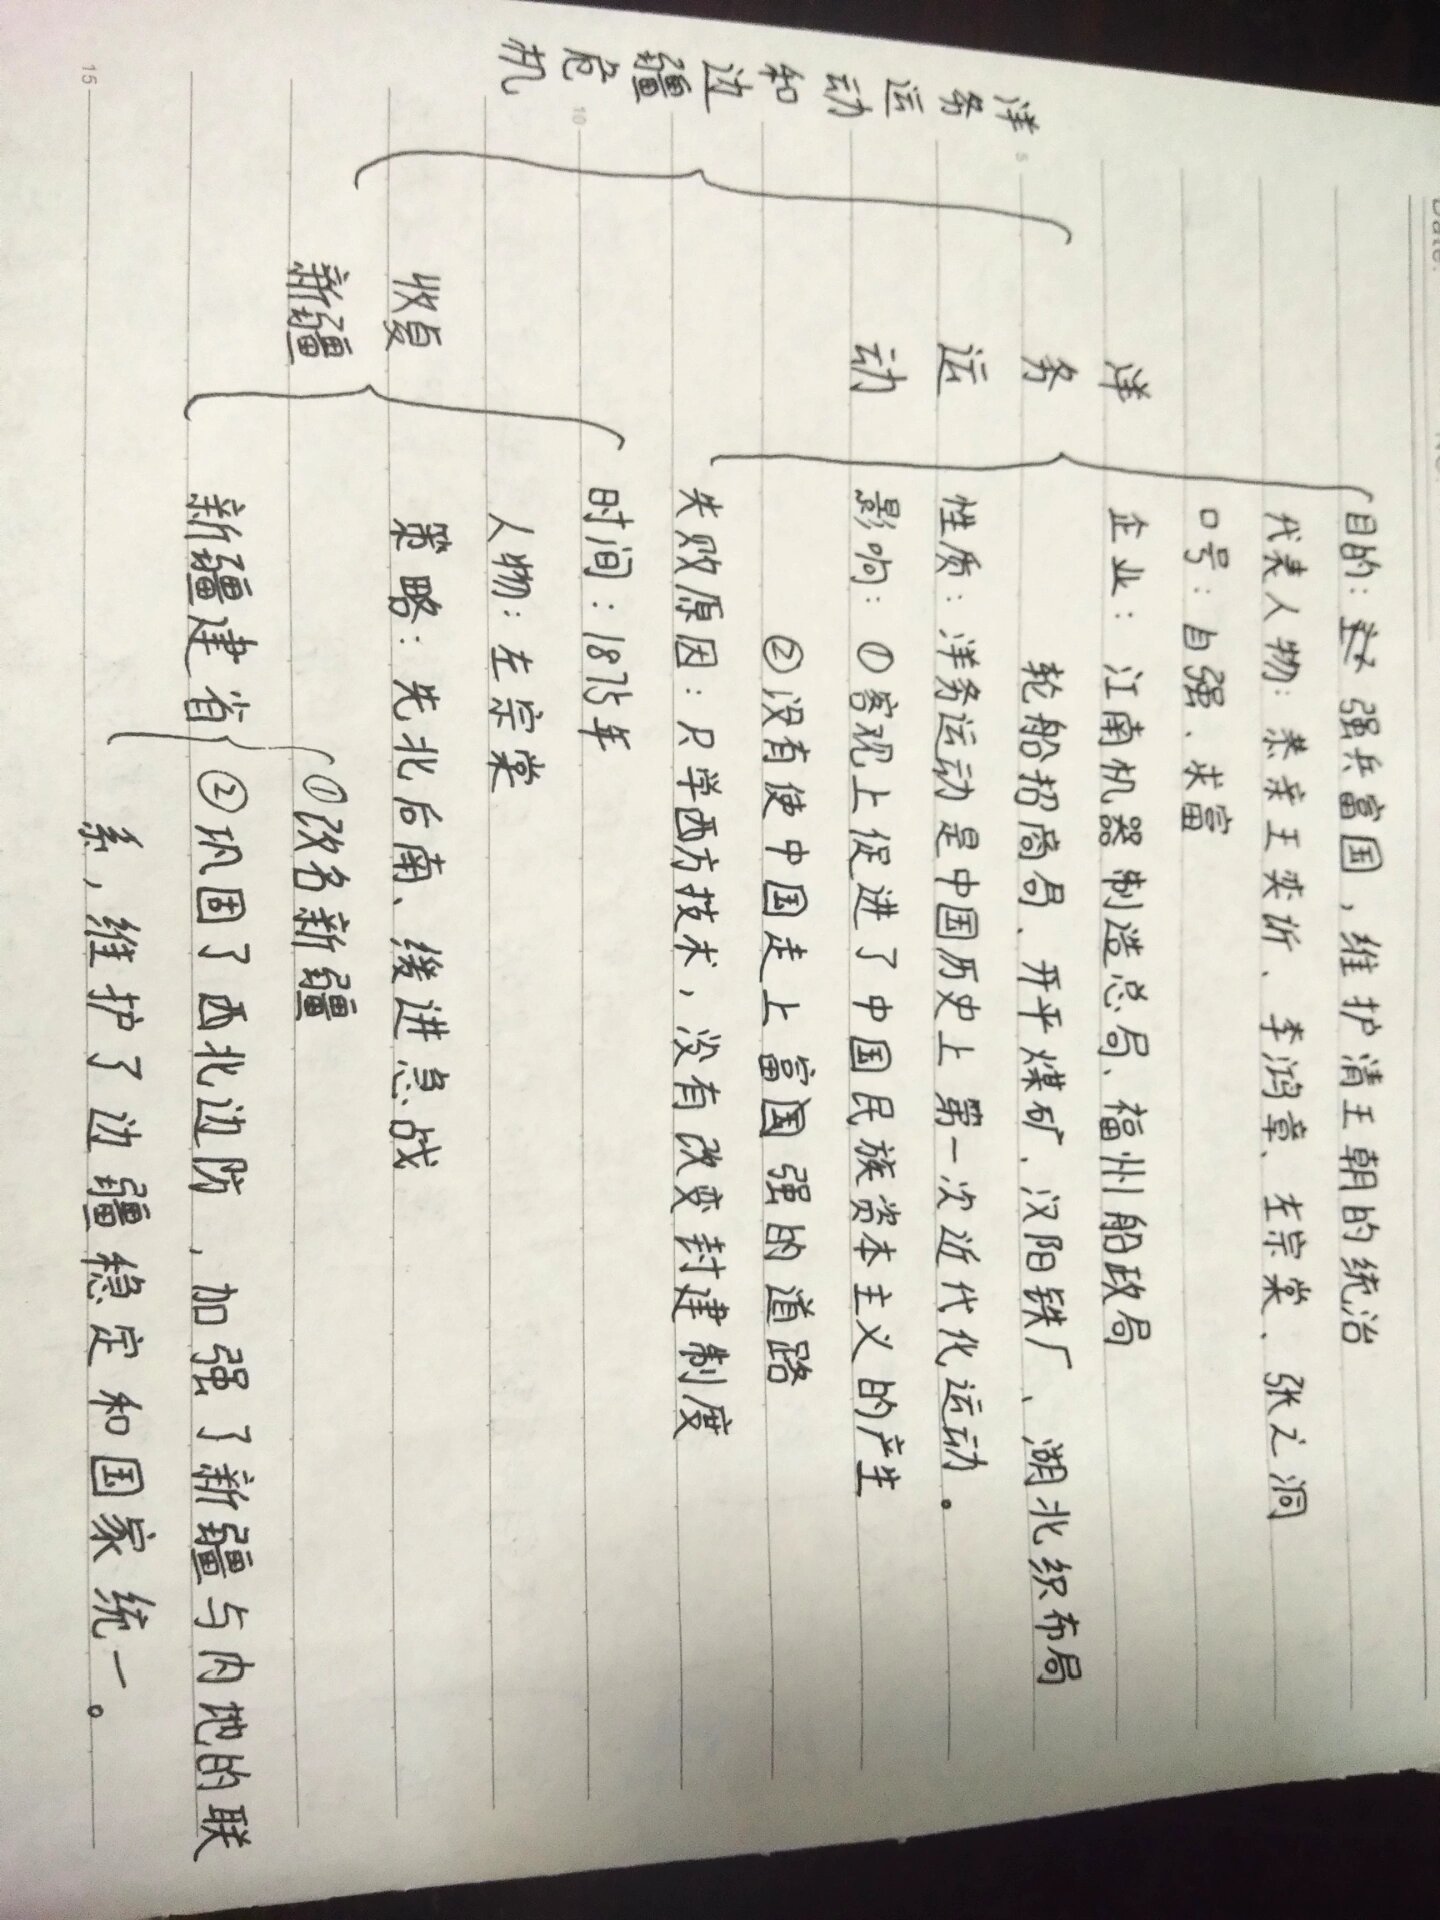 洋务运动和边疆危机
洋务运动
目的：强兵富国，维护清王朝的统治
代表人物：恭亲王奕䜣、李鸿章、左宗棠、张之洞
口号：自强、求富
企业：江南机器制造总局、福州船政局
轮船招商局、开平煤矿、汉阳铁厂、湖北织布局
性质：洋务运动是中国历史上第一次近代化运动。
影响：①客观上促进了中国民族资本主义的产生
②没有使中国走上富国强的道路
失败原因：只学西方技术，没有改变封建制度
收复
新疆
时间：1875年
人物：左宗棠
策略：先北后南、缓进急战
新疆建省
①改名新疆
②巩固了西北边防，加强了新疆与内地的联
系，维护了边疆稳定和国家统一。
15
10
5
Date: